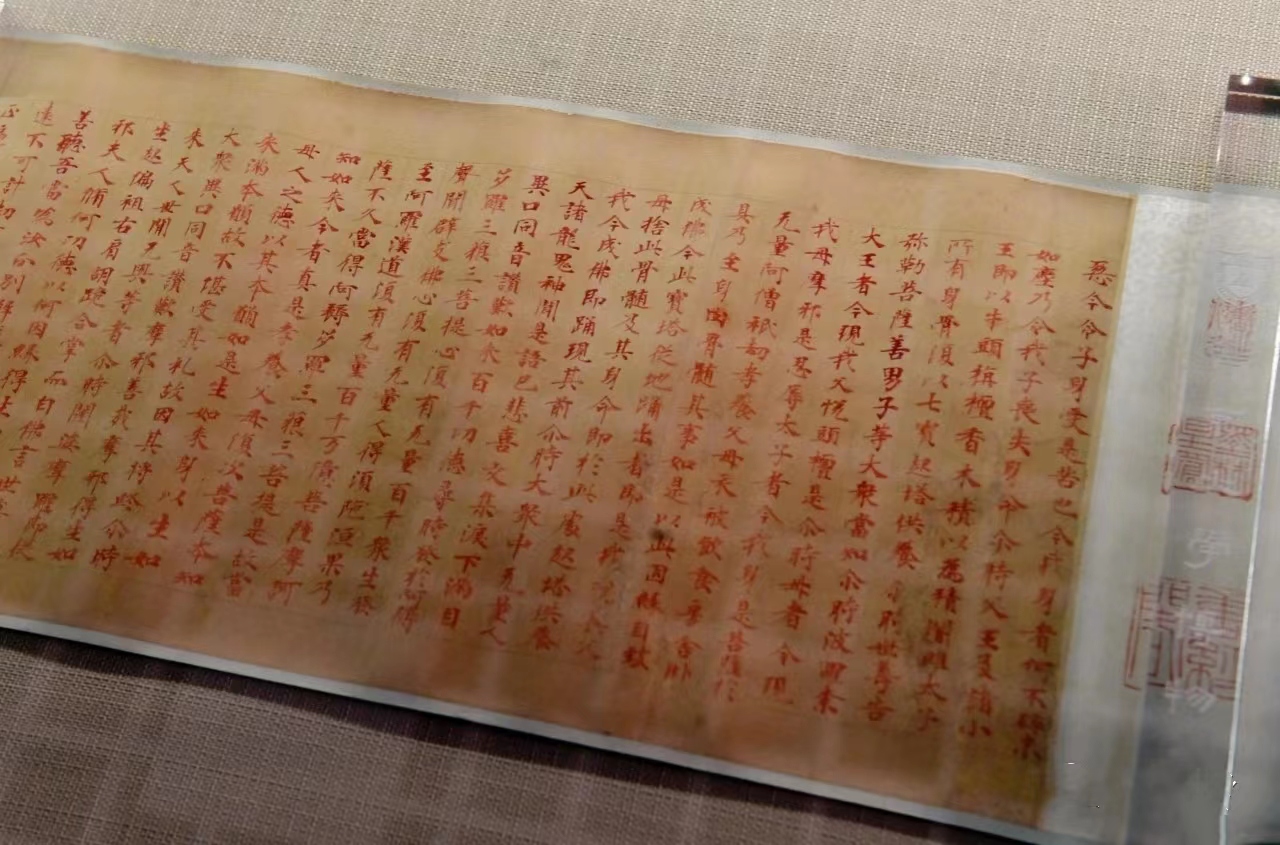 惡令令子身受是苦也令我身者何不碎末
如塵乃令我子喪失身命尒時父王及諸小
王即以牛頭栴檀香木積以為積闍維太子
所有身骨復以七寶起塔供養尒時世尊告
弥勒菩薩善男子等大衆當知尒時波羅柰
大王者今現我父悅頭檀是尒時母者今現
我母摩耶是忍辱太子者今我身是菩薩於
无量阿僧祇劫孝養父母衣被飲食房舍卧
具乃至身肉骨髓其事如是以此因緣自致
成佛今此寶塔從地踊出者即是我為其父
母捨此骨髓及其身命即於此處起塔供養
我今成佛即踊現其前尒時大衆中无量人
天諸龍鬼神聞是語已悲喜交集淚下滿目
異口同音讚歎如来百千功德尋時發於阿耨
多羅三藐三菩提心復有无量百千衆生發
聲聞辟支佛心復有无量人得須陁洹果乃
至阿羅漢道復有无量百千万億菩薩摩訶
薩不久當得阿耨多羅三藐三菩提是故當
知如来今者真是孝養父母復次菩薩本知
母人之德以其本願如是生如来身以生如
来滿本願故不堪受其礼故因其將終尒時
大衆異口同音讚歎摩耶善哉摩耶得生如
来天人世間无與等者尒時聞婆摩羅即從
坐起偏袒右肩胡跪合掌而白佛言世尊
耶夫人脩何功德以何因緣得生
善聽吾當為汝分別解
遠不可計劫